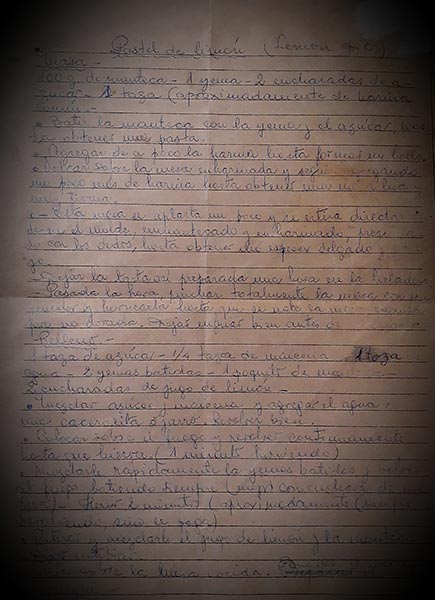 Pastel de limón (Lemon pie)
Masa -
100 g. de manteca - 1 yema - 2 cucharadas de a-
zúcar - 1 taza (aproximadamente de harina
común -
Batir la manteca con la yema y el azúcar, has-
ta obtener una pasta.
Agregar de a poco la harina hasta formar un bollo.
Volcar sobre la mesa enharinada y seguir
un poco más de harina hasta obtener una masa lisa y
muy tierna.
- Esta masa se aplasta un poco y se estira directa-
en el molde, enmantecado y enharinado,
do con los dedos, hasta obtener un espesor delgado
- Dejar la tarta así preparada una hora en la heladera
- Pasada la hora pinchar totalmente la masa con un
tenedor y hornearla hasta que se note la masa cocida
pero no dorada. Dejar enfriar bien antes de
Relleno -
1 taza de azúcar - 1/4 taza de maicena 1 taza
agua - 2 yemas batidas - 1 poquito de
2 cucharadas de jugo de limón -
Mezclar azúcar y maicena y agregar el agua
una cacerolita o jarro. Revolver bien.
Colocar sobre el fuego y revolver continuamente
hasta que hierva. (1 minuto hirviendo)
Mezclarle rápidamente la yemas batidas y volver
al fuego batiendo siempre (mejor con cuchara de ma-
dera) - Hervir 2 minutos (aproximadamente (siempre
revolviendo, sino se pega)
Retirar y mezclarle el jugo de limón y la manteca
Dejar enfriar
sobre la masa cocida.